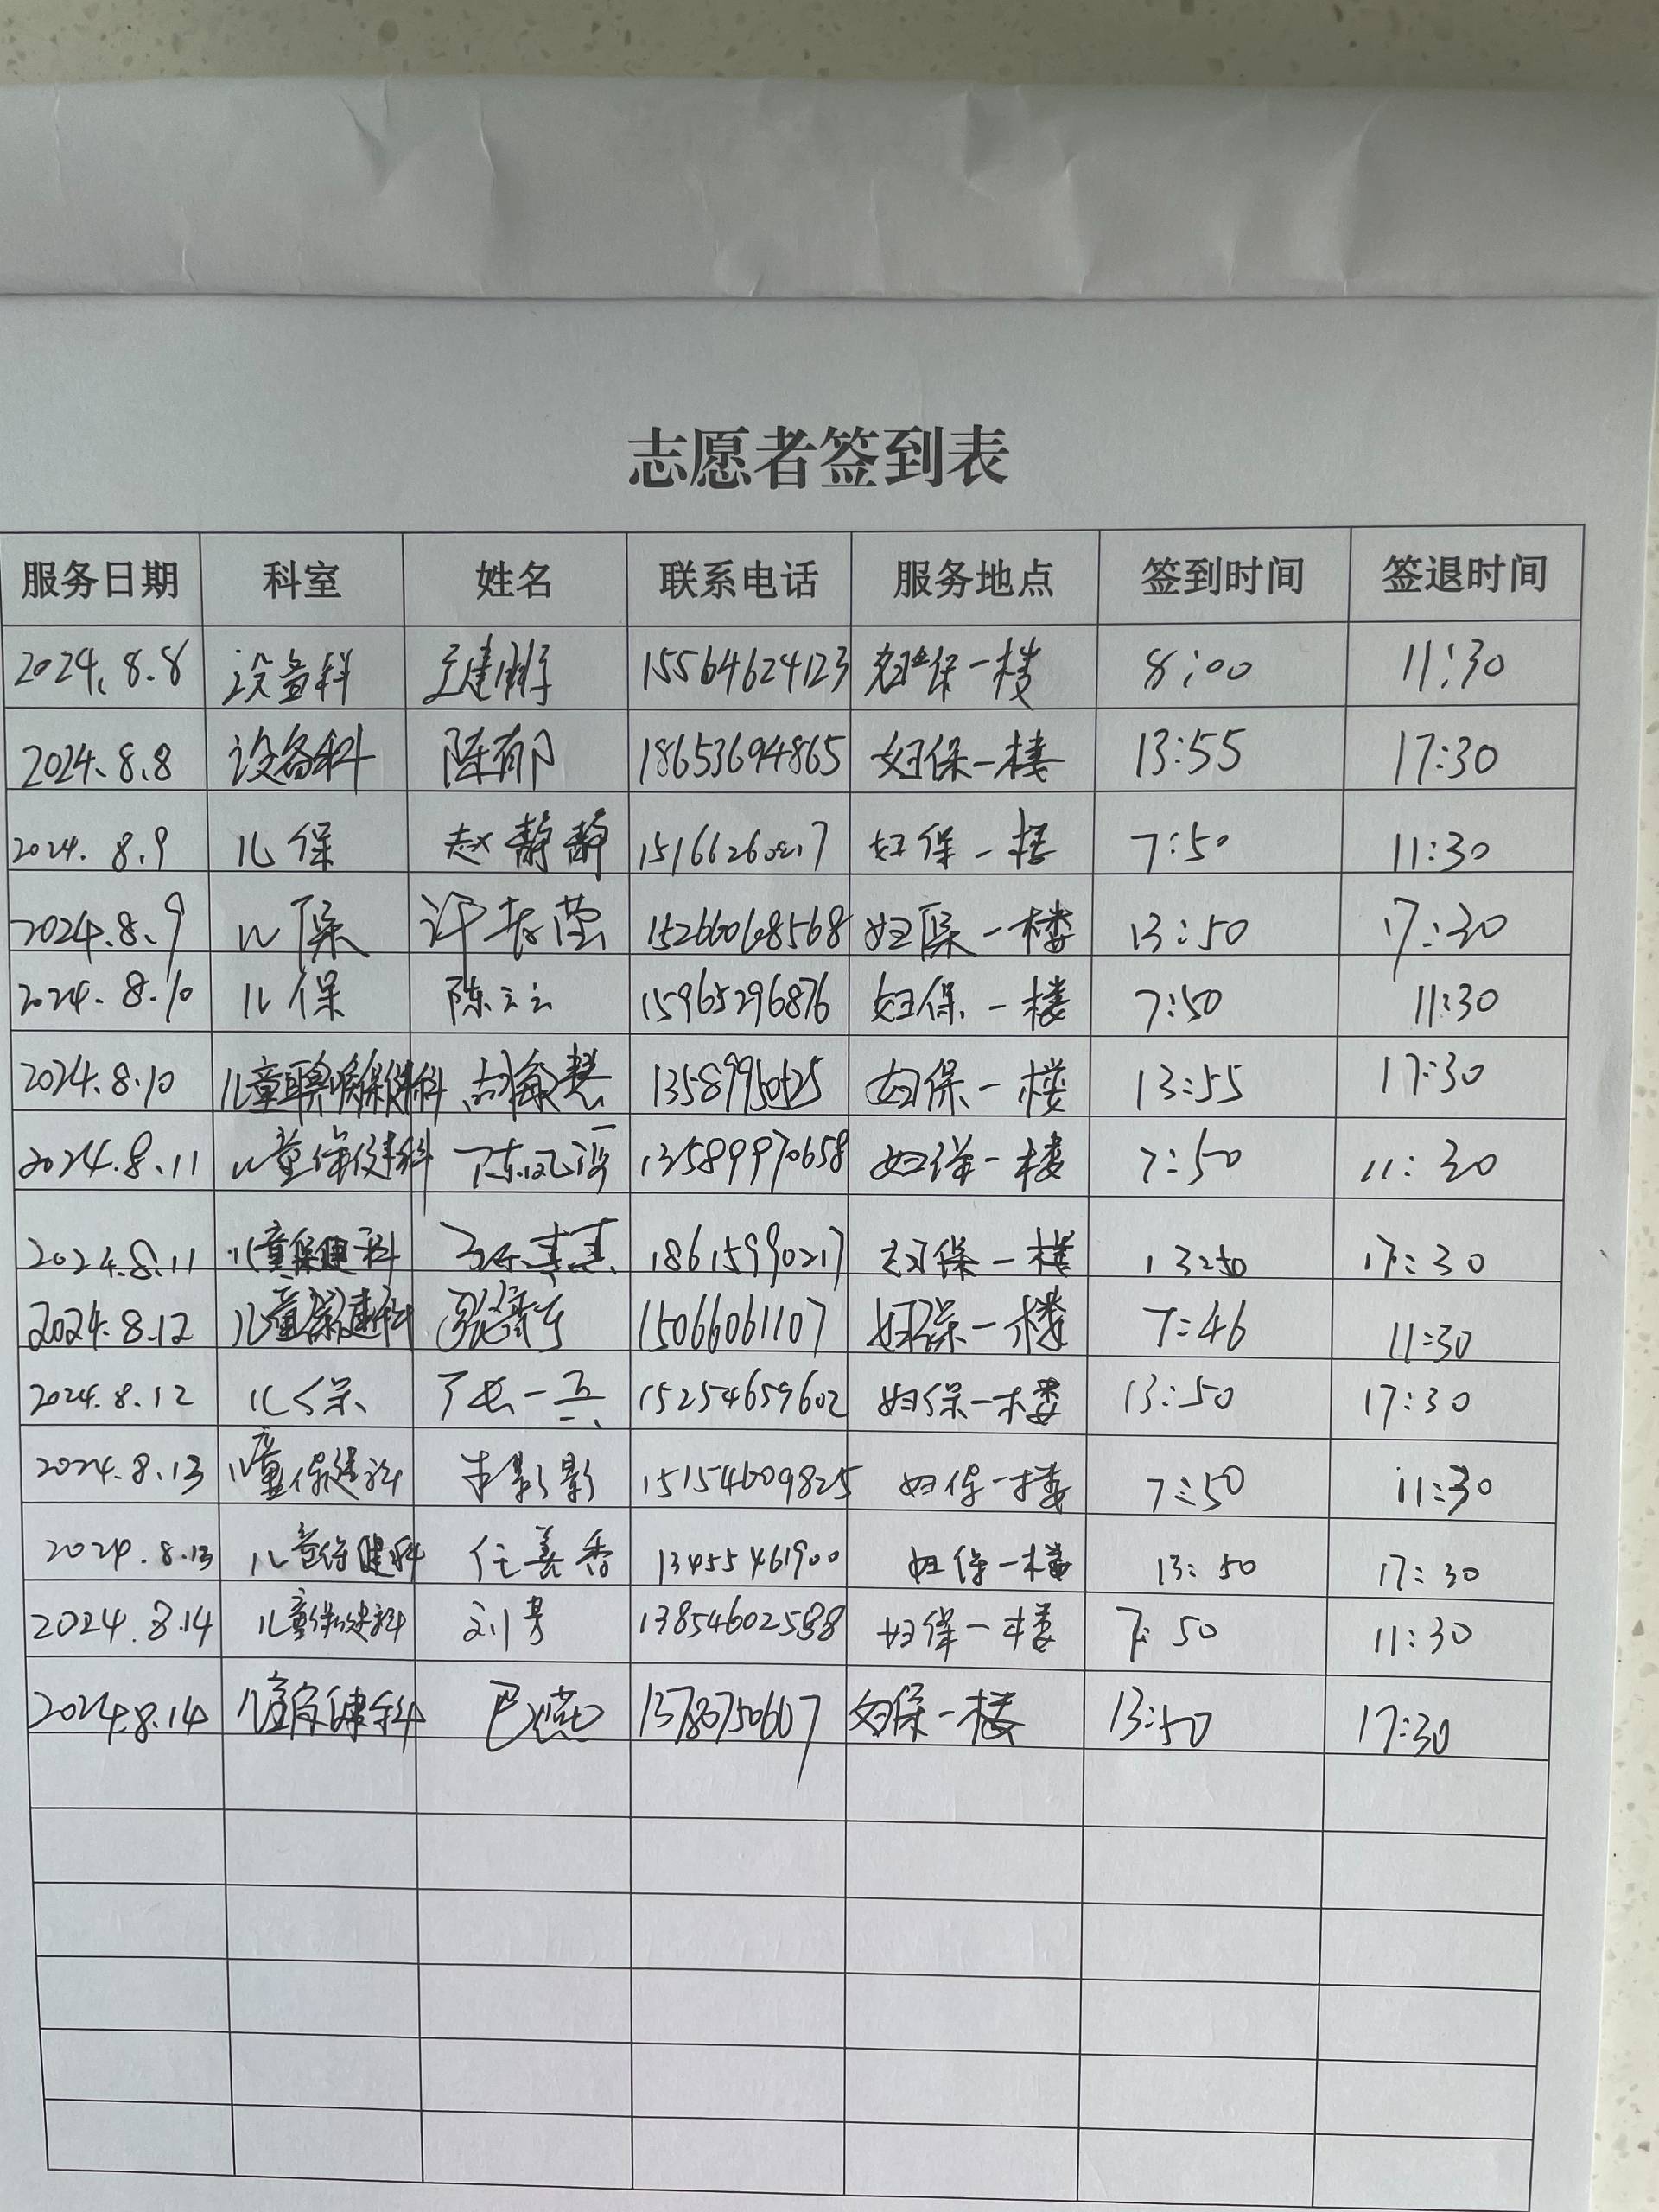 志愿者签到表
服务日期 科室 姓名 联系电话 服务地点 签到时间 签退时间
2024.8.8 设备科 15564624123 妇保一楼 8:00 11:30
2024.8.8 设备科 陈郁 18653694865 妇保一楼 13:55 17:30
2024.8.9 儿保 赵静静 妇保一楼 7:50 11:30
2024.8.9 儿保 许春莹 15266068568 妇保一楼 13:50 17:30
2024.8.10 儿保 陈云云 15965296876 妇保一楼 7:50 11:30
2024.8.10 妇保一楼 13:55 17:30
2024.8.11 儿童保健科 13589970658 妇保一楼 7:50 11:30
2024.8.11 儿童保健科 18615990217 妇保一楼 13:50 17:30
2024.8.12 儿童保健科 15066061107 妇保一楼 7:46 11:30
2024.8.12 儿保 15254659602 妇保一楼 13:50 17:30
2024.8.13 儿童保健科 15154609825 妇保一楼 7:50 11:30
2024.8.13 儿童保健科 任美香 13455461900 妇保一楼 13:50 17:30
2024.8.14 儿童保健科 13854602588 妇保一楼 7:50 11:30
2024.8.14 儿童保健科 巴燕 妇保一楼 13:50 17:30